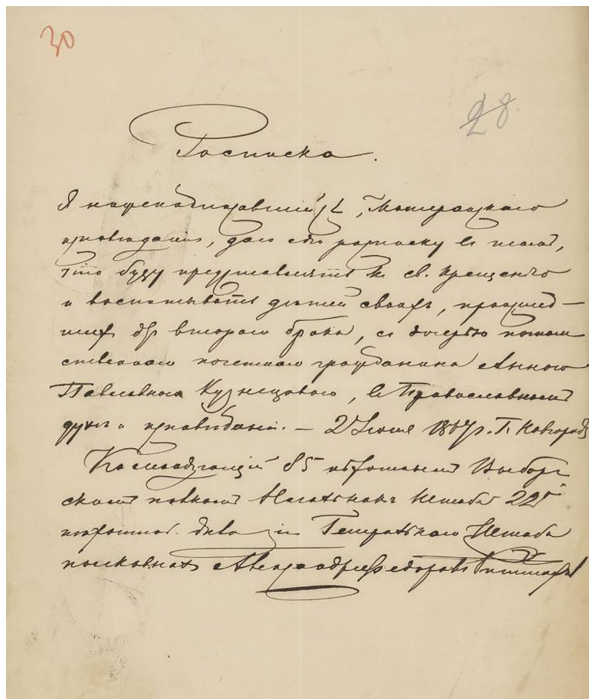 30
28
Росписка.
Я нижеподписавшийся, Лютеранского
исповедания, даю сию росписку в том,
что буду представлять к св. крещению
и воспитывать детей своих,
от второго брака, с дочерью потом
ственного почетного гражданина Анною
Павловною Кузнецовою, в Православном
духе и исповедании. – 2 Июня г. Г. Новгород
Командующий 85 пехотным Выборг
ским полком Начальник Штаба 22й
пехотной дивизии Генерального Штаба
полковник Александр Федоров